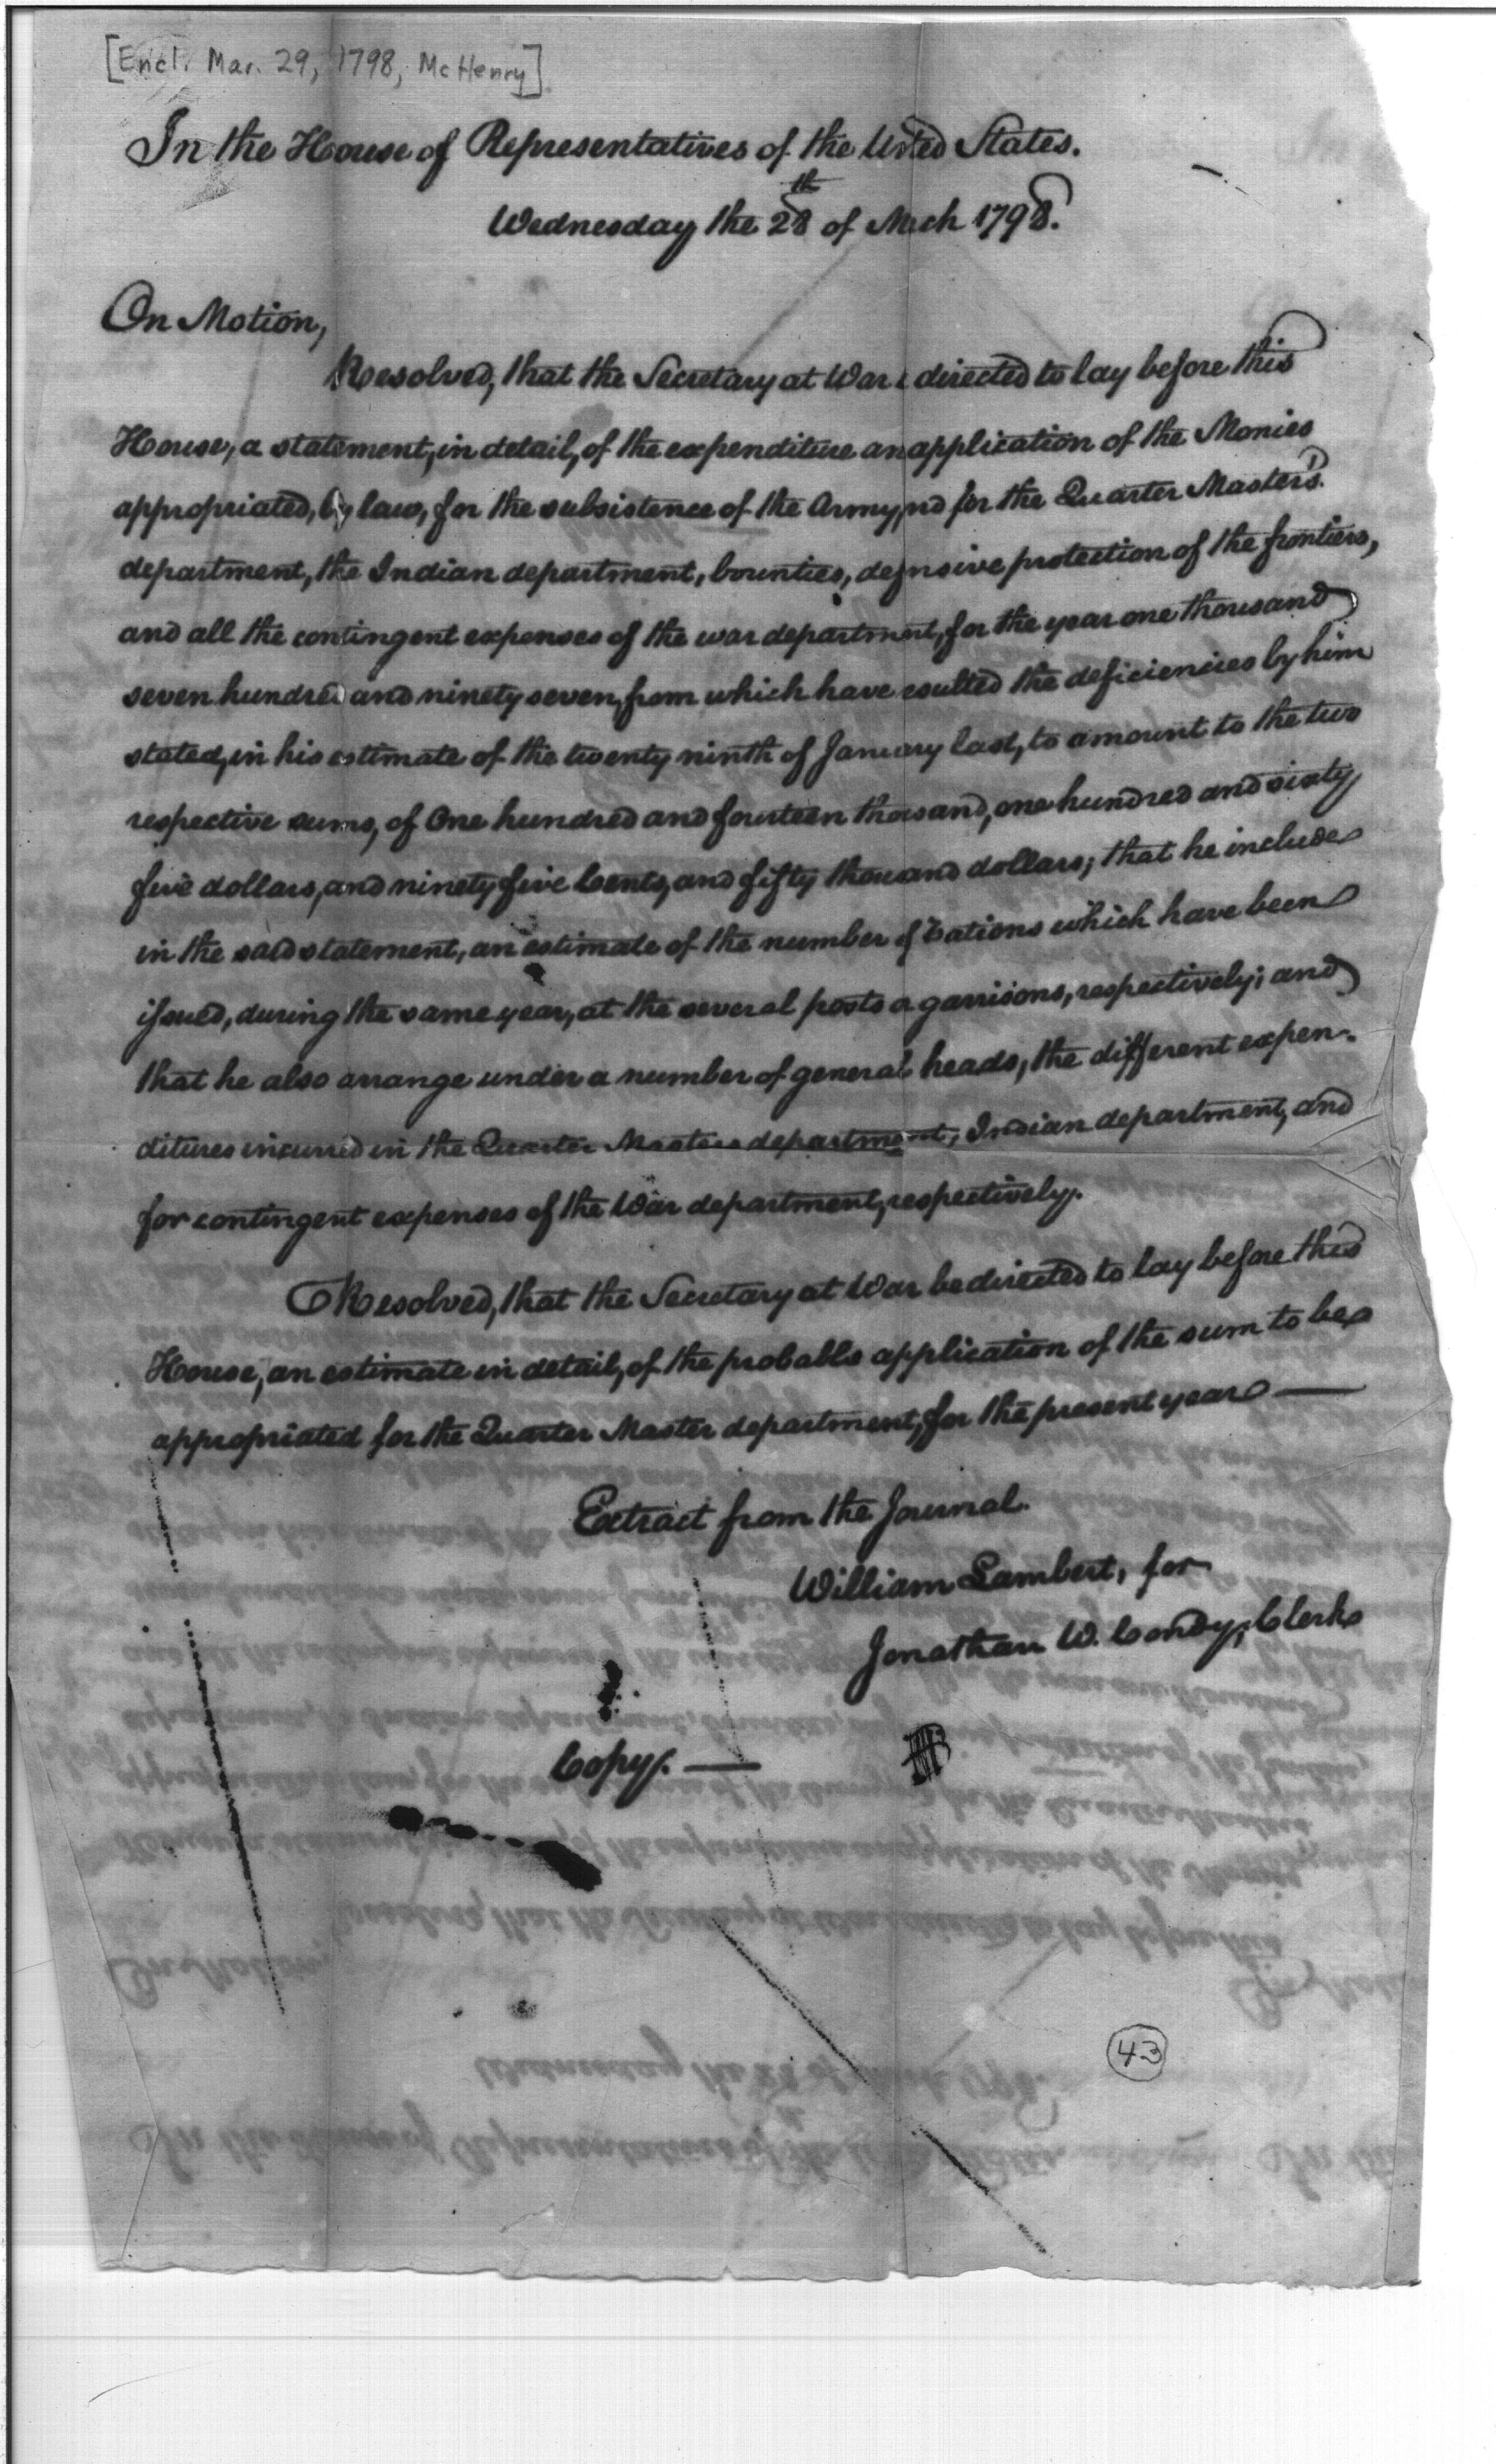 [Encl. Mar. 29, 1798, McHenry]
In the House of Representatives of the United States.
Wednesday the 28th of March 1798.
On Motion,
Resolved, that the Secretary at War directed to lay before this
House, a statement, in detail, of the expenditure an application of the Monies
appropriated, by law, for the subsistence of the Army, nd for the Quarter Master's
department, the Indian department, bounties, defensive protection of the frontiers,
and all the contingent expenses of the war department, for the year one thousand
seven hundred and ninety seven, from which have esulted the deficiencies by him
stated, in his estimate of the twenty ninth of January last, to amount to the two
respective sums, of One hundred and fourteen thousand, one hundred and sixty
five dollars, and ninety five Cents, and fifty thousand dollars; that he include
in the said statement, an estimate of the number of rations which have been
issued, during the same year, at the several posts o garrisons, respectively; and
that he also arrange under a number of general heads, the different expen-
ditures incurred in the Quarter Masters department, Indian department, and
for contingent expenses of the War department, respectively.
Resolved, that the Secretary at War be directed to lay before this
House, an estimate in detail, of the probable application of the sum to be
appropriated for the Quarter Master department, for the present year —
Extract from the Journal.
William Lambert, for
Jonathan W. Condy, Clerk
Copy. —
43